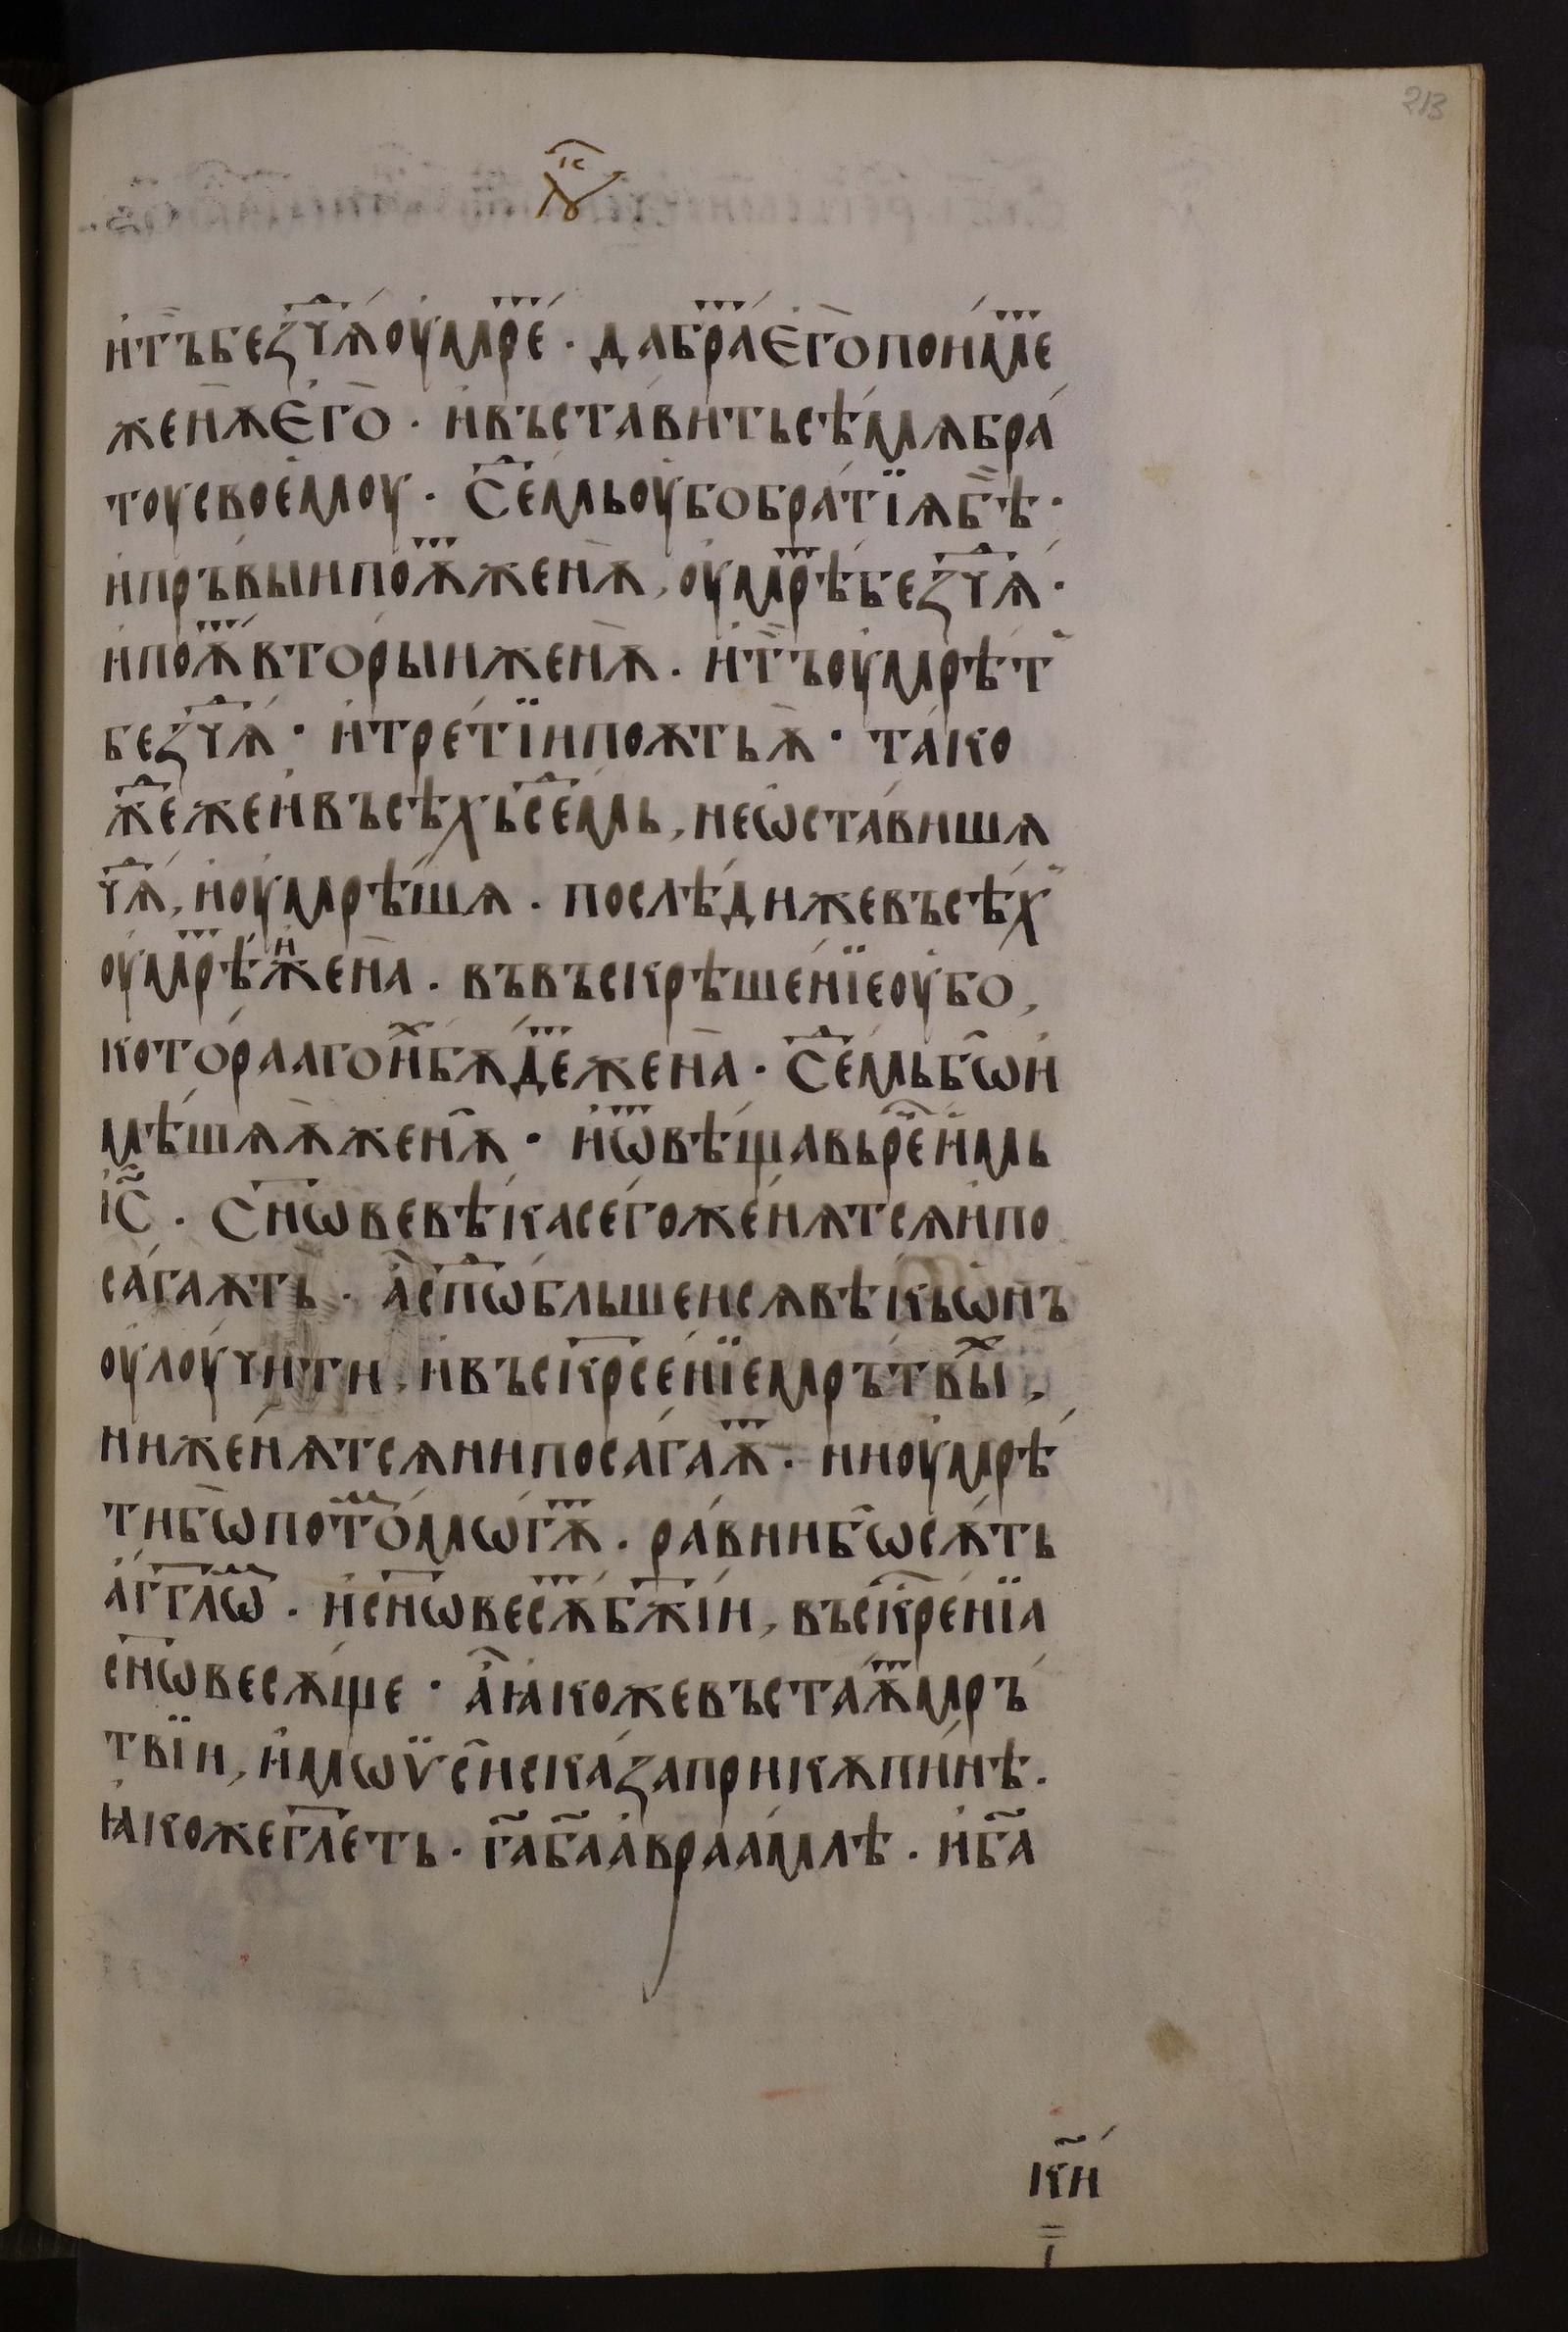 213
і҃с
и҆т҃ъбезч҃ѧоу҆мре҃. дабра҃е҆гопоиме҃
женѫе҆го. и҆въставитьсѣмѧбра
тоусвоемоу. Се҃мьоу҆бобратїѧбѣ.
и҆пръвыипоѫ҃женѫ, оу҆мрѣ҃безч҃ѧ.
и҆поѫ҃вторыиженѫ. и҆т҃ъоу҆мрѣт
безч҃ѧ. и҆третїипоѫтьѫ. тако
ж҃еженвъсѣхьсе҃мь, неѡ҆ставишѧ
ч҃ѧ, и҆оу҆мрѣшѧ. послѣдижевъсѣх
оу҆мрѣ҃иж҃ена. въвъскрѣшенїеоу҆бо,
котораагоиⷯбѫде҃жена. Се҃мьбѡи҆
мѣшѧѫженѫ. и҆ѿвѣщавьре҃и҆мь
І҃с. Сн҃ѡвевѣкасегоженѧтсѧи҆по
сагаѫть. а҆сп҃ѡбльшеисѧвѣкьѡ҆нъ
оу҆лоучити, и҆въск҃рсенїемрътвыⷯ,
ниженѧтсѧнипосагаѫ҃. ниоу҆мрѣ
тибѡпотоⷨмѡгѫ҃. равнибѡсѫть
а҆гг҃лѡⷨ. и҆сн҃ѡвесѫ҃бж҃їи, въск҃ренїа
сн҃ѡвесѫще. а҆ꙗ҆кожевъстаѫ҃мръ
твїи, и҆мѡѵ̈сисказаприкѫпинѣ.
ꙗ҆кожегл҃еть. г҃аб҃аа҆враамлѣ. и҆б҃а
к҃и